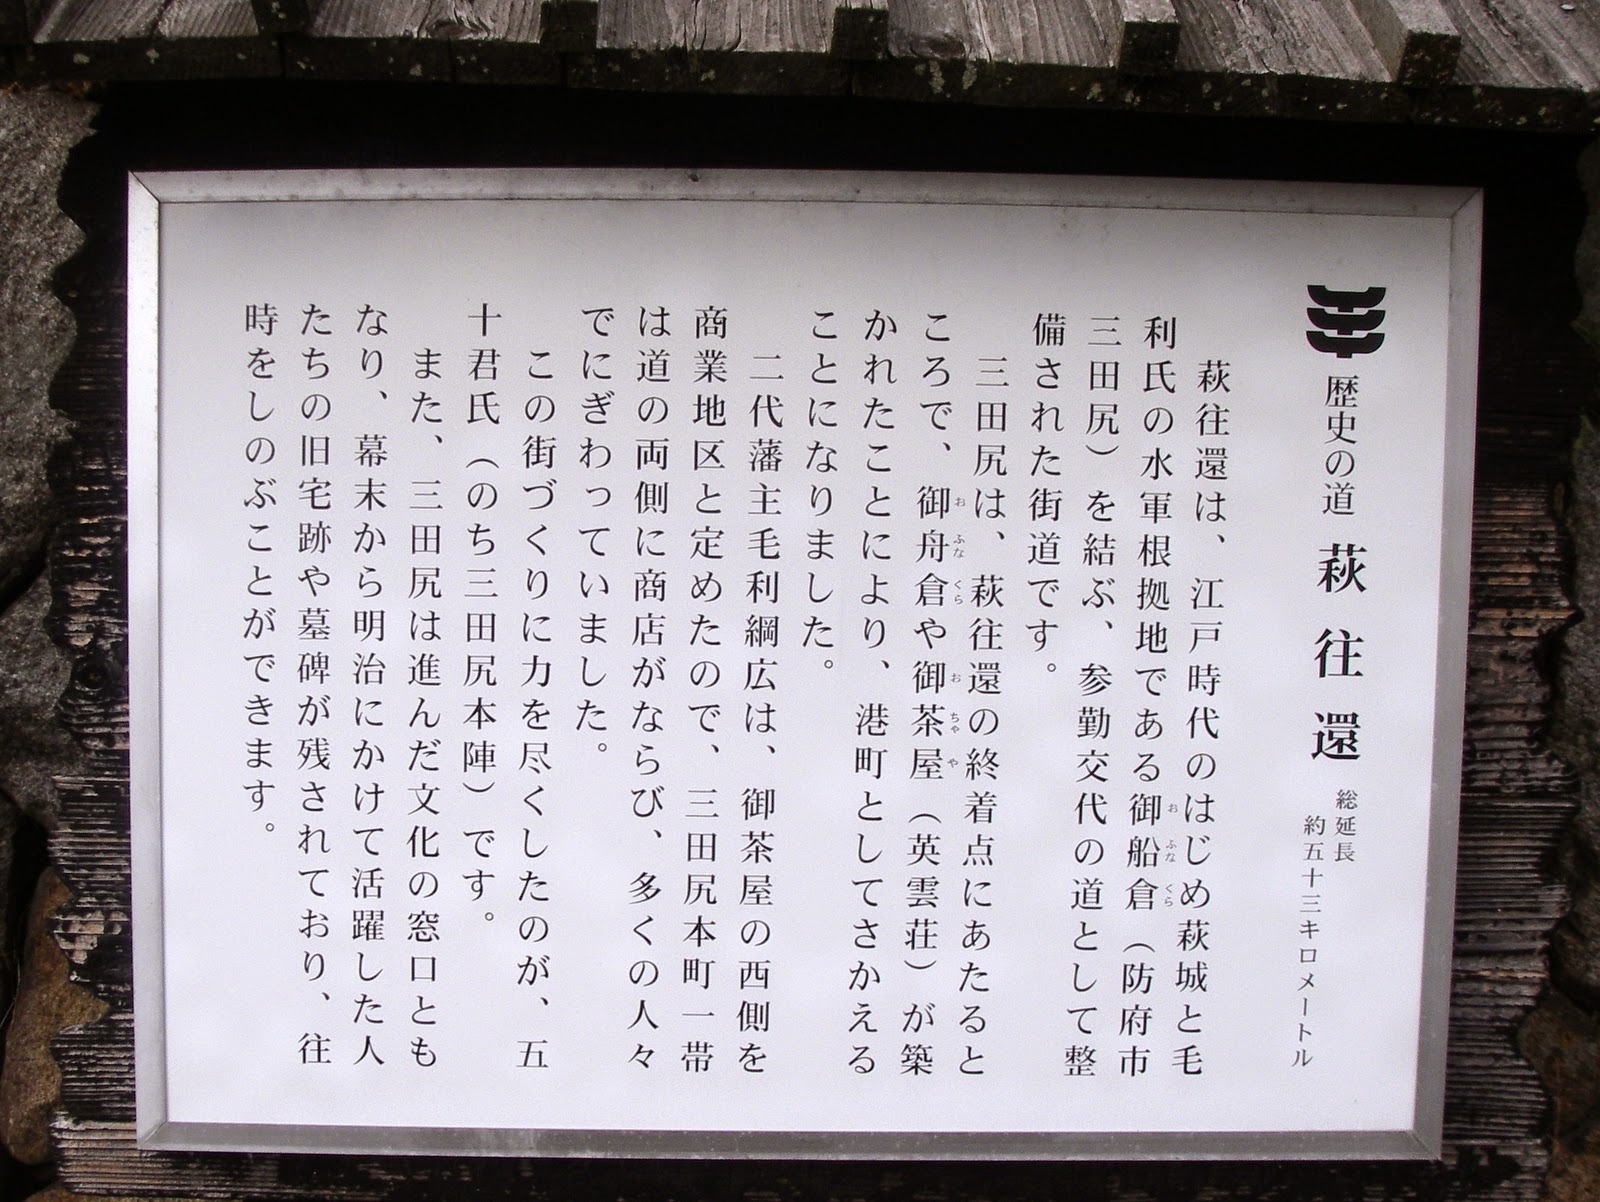 歴史の道 萩往還 総延長
約五十三キロメートル
萩往還は、江戸時代のはじめ萩城と毛
利氏の水軍根拠地である御船倉（防府市
三田尻）を結ぶ、参勤交代の道として整
備された街道です。
三田尻は、萩往還の終着点にあたると
ころで、御舟倉や御茶屋（英雲荘）が築
かれたことにより、港町としてさかえる
ことになりました。
二代藩主毛利綱広は、御茶屋の西側を
商業地区と定めたので、三田尻本町一帯
は道の両側に商店がならび、多くの人々
でにぎわっていました。
この街づくりに力を尽くしたのが、五
十君氏（のち三田尻本陣）です。
また、三田尻は進んだ文化の窓口とも
なり、幕末から明治にかけて活躍した人
たちの旧宅跡や墓碑が残されており、往
時をしのぶことができます。